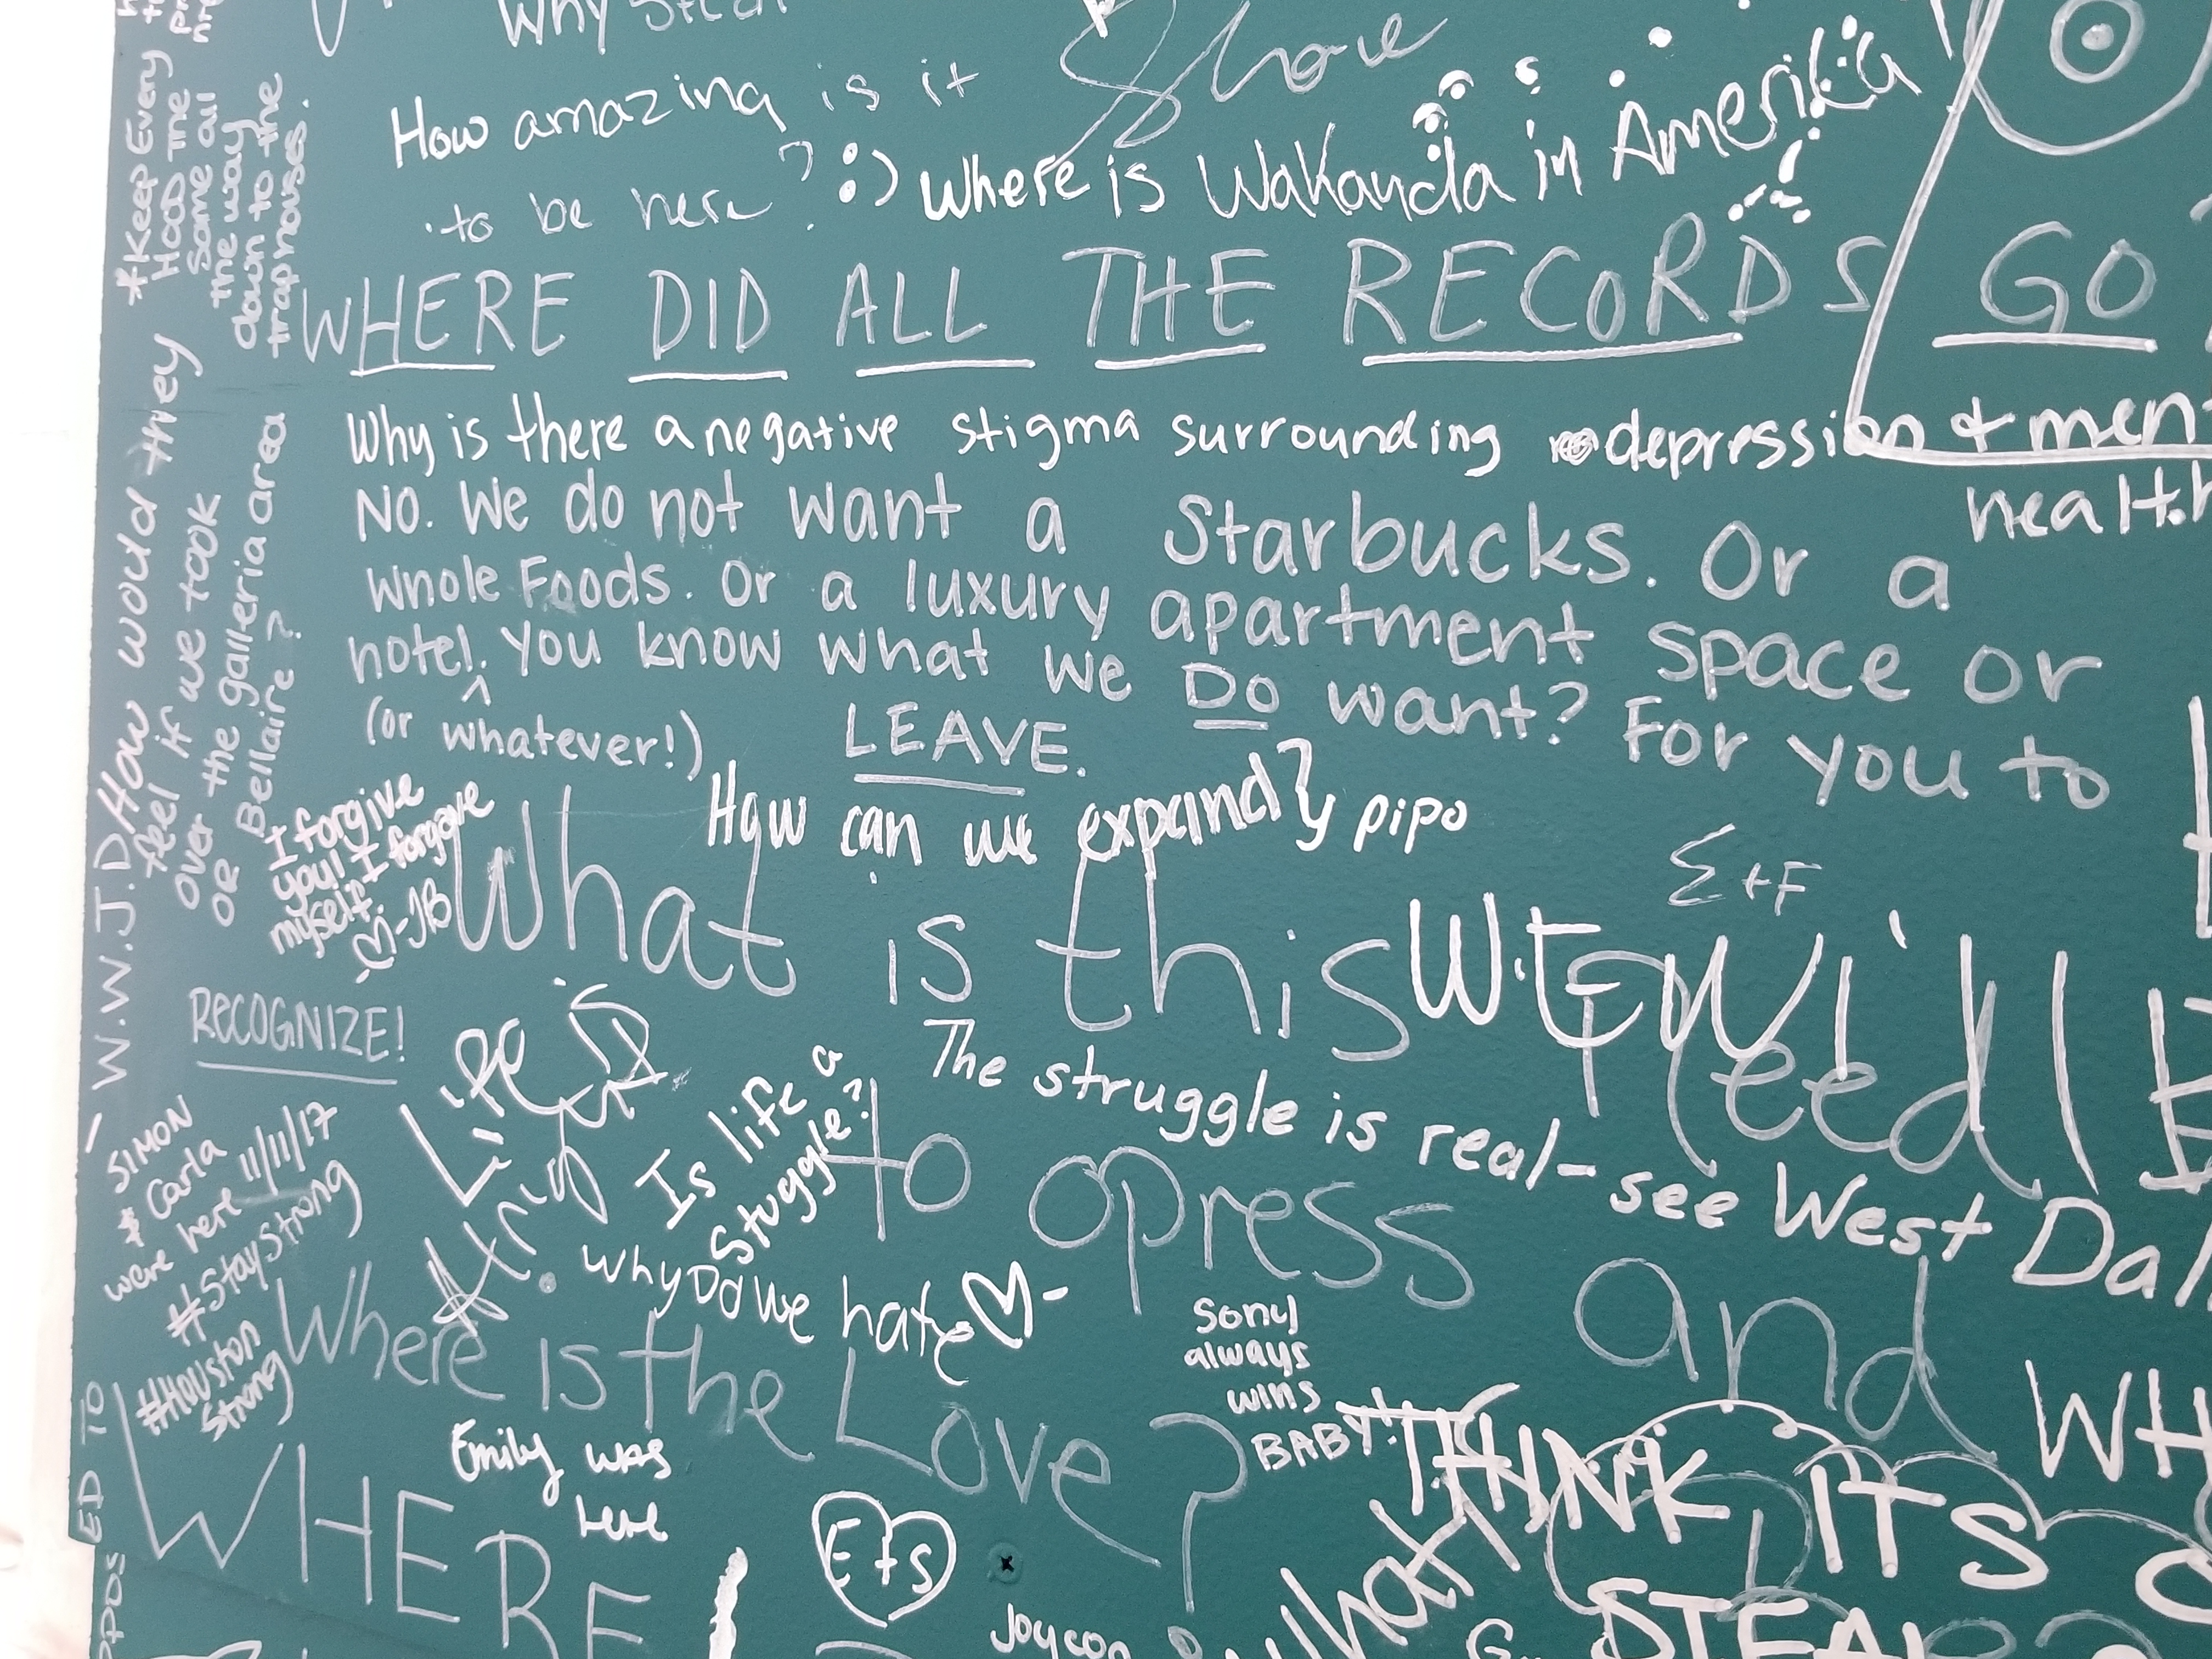 Why Steal
Show
How amazing is it
to be here? :)
Where is Wakanda in Amerika
WHERE DID ALL THE RECORDS GO
Why is there a negative stigma surrounding depression + men
health
No. We do not want a Starbucks. Or a
Whole Foods. Or a luxury apartment space or
hotel. You know what we DO want? For you to
(or whatever!)
LEAVE.
*Keep Every
Hood The
Same all
the way
down to the
traphouses.
How would they
feel if we took
over the galleria area
OR Bellaire?
W.W.J.D
I forgive
you! I forgave
myself.
-JB
How can we expand? pipo
E+F
What is this
need
to opress
and
RECOGNIZE!
Life is
Is life a
Stuggle?
The struggle is real-see West Dal
SIMON
Carla
were here 11/11/17
#StayStrong
#Houston
Strong
Why Do We hate
Where is the Love?
Sony
always
wins
BABY!
Emily was
here
E+S
WHERE
ED TO
WH
THINK ITS
What
STEAL